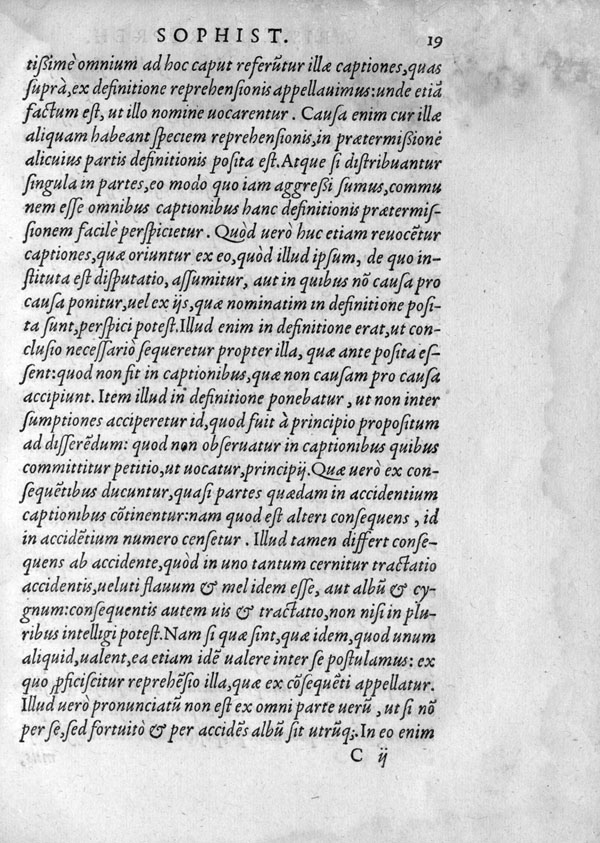 SOPHIST. 19
tißimè omnium ad hoc caput referũtur illæ captiones, quas
suprà, ex definitione reprehensionis appellauimus: unde etiã
factum est, ut illo nomine uocarentur. Causa enim cur illæ
aliquam habeant speciem reprehensionis, in prætermißione
alicuius partis definitionis posita est. Atque si distribuantur
singula in partes, eo modo quo iam aggreßi sumus, commu
nem esse omnibus captionibus hanc definitionis prætermis-
sionem facilè perspicietur. Quòd uerò huc etiam reuocẽtur
captiones, quæ oriuntur ex eo, quòd illud ipsum, de quo in-
stituta est disputatio, assumitur, aut in quibus nõ causa pro
causa ponitur, uel ex ijs, quæ nominatim in definitione posi-
ta sunt, perspici potest. Illud enim in definitione erat, ut con-
clusio necessariò sequeretur propter illa, quæ ante posita es-
sent: quod non fit in captionibus, quæ non causam pro causa
accipiunt. Item illud in definitione ponebatur, ut non inter
sumptiones acciperetur id, quod fuit à principio propositum
ad disserẽdum: quod non obseruatur in captionibus quibus
committitur petitio, ut uocatur, principij. Quæ uerò ex con-
sequẽtibus ducuntur, quasi partes quædam in accidentium
captionibus cõtinentur: nam quod est alteri consequens, id
in accidẽtium numero censetur. Illud tamen differt conse-
quens ab accidente, quòd in uno tantum cernitur tractatio
accidentis, ueluti flauum & mel idem esse, aut albũ & cy-
gnum: consequentis autem uis & tractatio, non nisi in plu-
ribus intelligi potest. Nam si quæ sint, quæ idem, quod unum
aliquid, ualent, ea etiam idẽ ualere inter se postulamus: ex
quo ꝓficiscitur reprehẽsio illa, quæ ex cõsequẽti appellatur.
Illud uerò pronunciatũ non est ex omni parte uerũ, ut si nõ
per se, sed fortuitò & per accidẽs albũ sit utrũq;. In eo enim
C ij